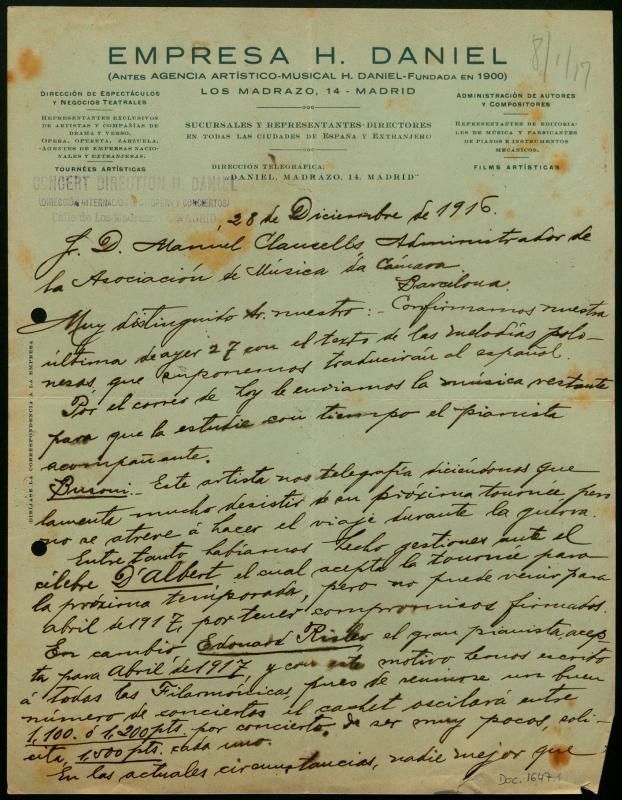 8/1/17
EMPRESA H. DANIEL
(ANTES AGENCIA ARTÍSTICO-MUSICAL H. DANIEL-FUNDADA EN 1900)
LOS MADRAZO, 14 - MADRID
DIRECCIÓN DE ESPECTÁCULOS
Y NEGOCIOS TEATRALES
REPRESENTANTES EXCLUSIVOS
DE ARTISTAS Y COMPAÑÍAS DE
DRAMA Y VERSO,
OPERA, OPERETA, ZARZUELA,
-AGENTES DE EMPRESAS NACIO-
NALES Y EXTRANJERAS.
TOURNÉES ARTÍSTICAS
SUCURSALES Y REPRESENTANTES-DIRECTORES
EN TODAS LAS CIUDADES DE ESPAÑA Y EXTRANJERO
DIRECCIÓN TELEGRÁFICA:
"DANIEL, MADRAZO, 14, MADRID"
ADMINISTRACIÓN DE AUTORES
Y COMPOSITORES
REPRESENTANTES DE EDITORIA-
LES DE MÚSICA Y FABRICANTES
DE PIANOS E INSTRUMENTOS
MECÁNICOS.
FILMS ARTÍSTICAS
CONCERT DIRECTION H. DANIEL
(DIRECCIÓN INTERNACIONAL DE OPERA Y CONCIERTOS)
Calle de Los Madrazo MADRID
DIRÍJASE LA CORRESPONDENCIA A LA EMPRESA
28 de Diciembre de 1916.
S. D. Manuel Clausells Administrador de
la Asociación de Música da Cámara
Barcelona.
Muy distinguido Sr. nuestro: - Confirmamos nuestra
última de ayer 27 con el texto de las melodías polo-
nesas, que suponemos traducirán al español.
Por el correo de hoy le enviamos la música restante
para que la estudie con tiempo el pianista
acompañante.
Busoni.- Este artista nos telegrafía diciéndonos que
lamenta mucho desistir de su próxima tournée pero
no se atreve á hacer el viaje durante la guerra.
Entre tanto habíamos hecho gestiones ante el
célebre D'Albert, el cual acepta la tournée para
la próxima temporada, pero no puede venir para
abril de 1917, por tener compromisos firmados.
En cambio Edouard Risler el gran pianista, acep-
ta para Abril de 1917 y con este motivo hemos escrito
á todas las Filarmónicas, pues de reunirse un buen
número de conciertos el cachet oscilará entre
1,100. ó 1,200 pts. por concierto. de ser muy pocos, soli-
cita, 1,500 pts. cada uno.
En las actuales circunstancias, nadie mejor que
Doc. 1647.1